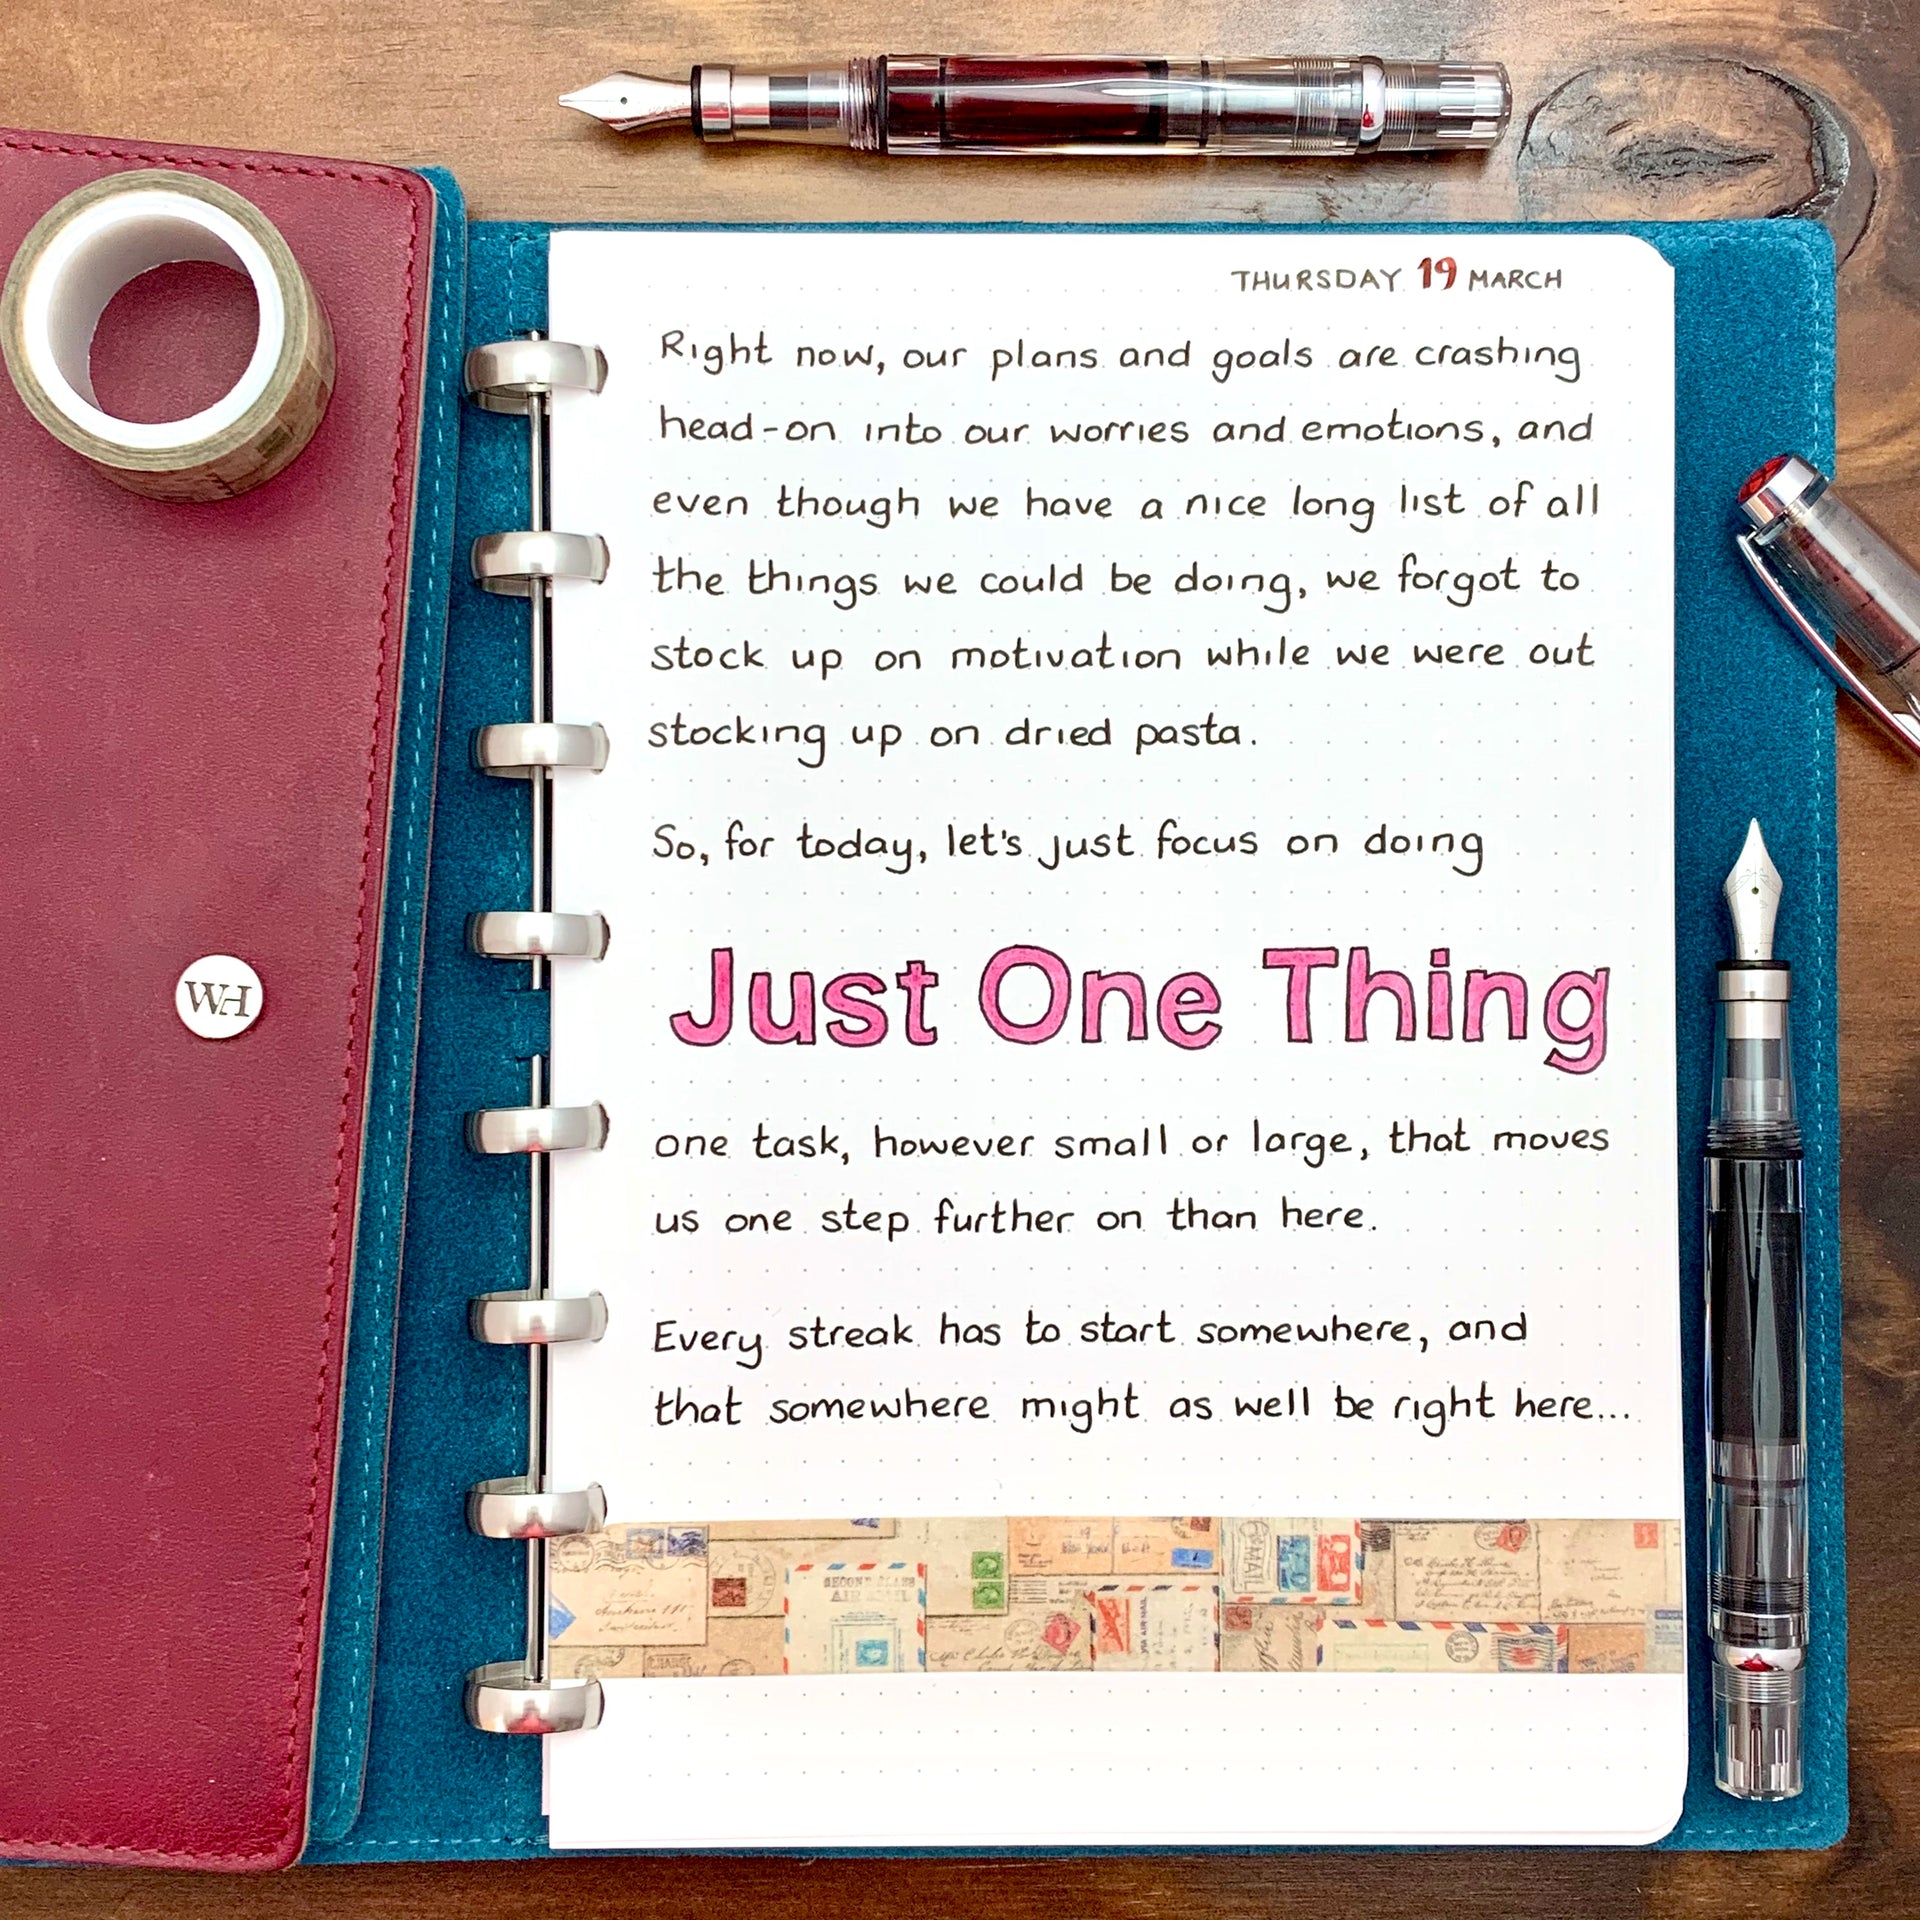 THURSDAY 19 MARCH
Right now, our plans and goals are crashing
head-on into our worries and emotions, and
even though we have a nice long list of all
the things we could be doing, we forgot to
stock up on motivation while we were out
stocking up on dried pasta.
So, for today, let's just focus on doing
Just One Thing
one task, however small or large, that moves
us one step further on than here.
Every streak has to start somewhere, and
that somewhere might as well be right here...
WH
SECOND CLASS
AIR MAIL
MAIL
VIA AIR MAIL